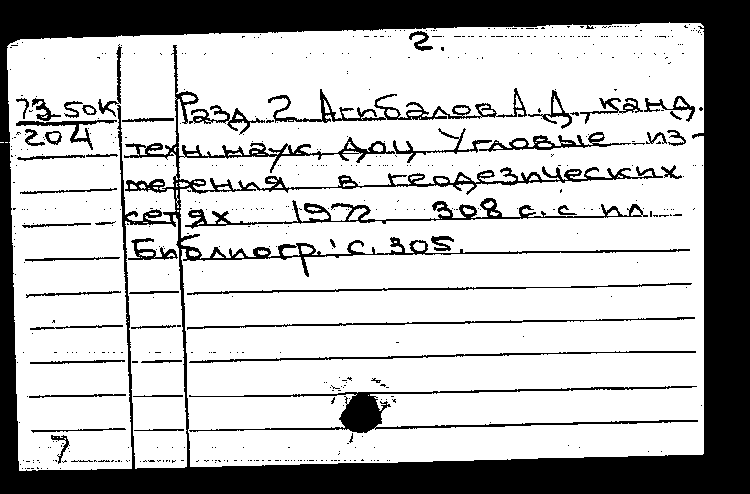 2.
73-50к Разд. 2 Агибалов А.Д., канд.
204 техн. наук, доц Угловые из-
мерения в геодезических
сетях. 1972. 308 с. с ил.
Библиогр.: с. 305.
7